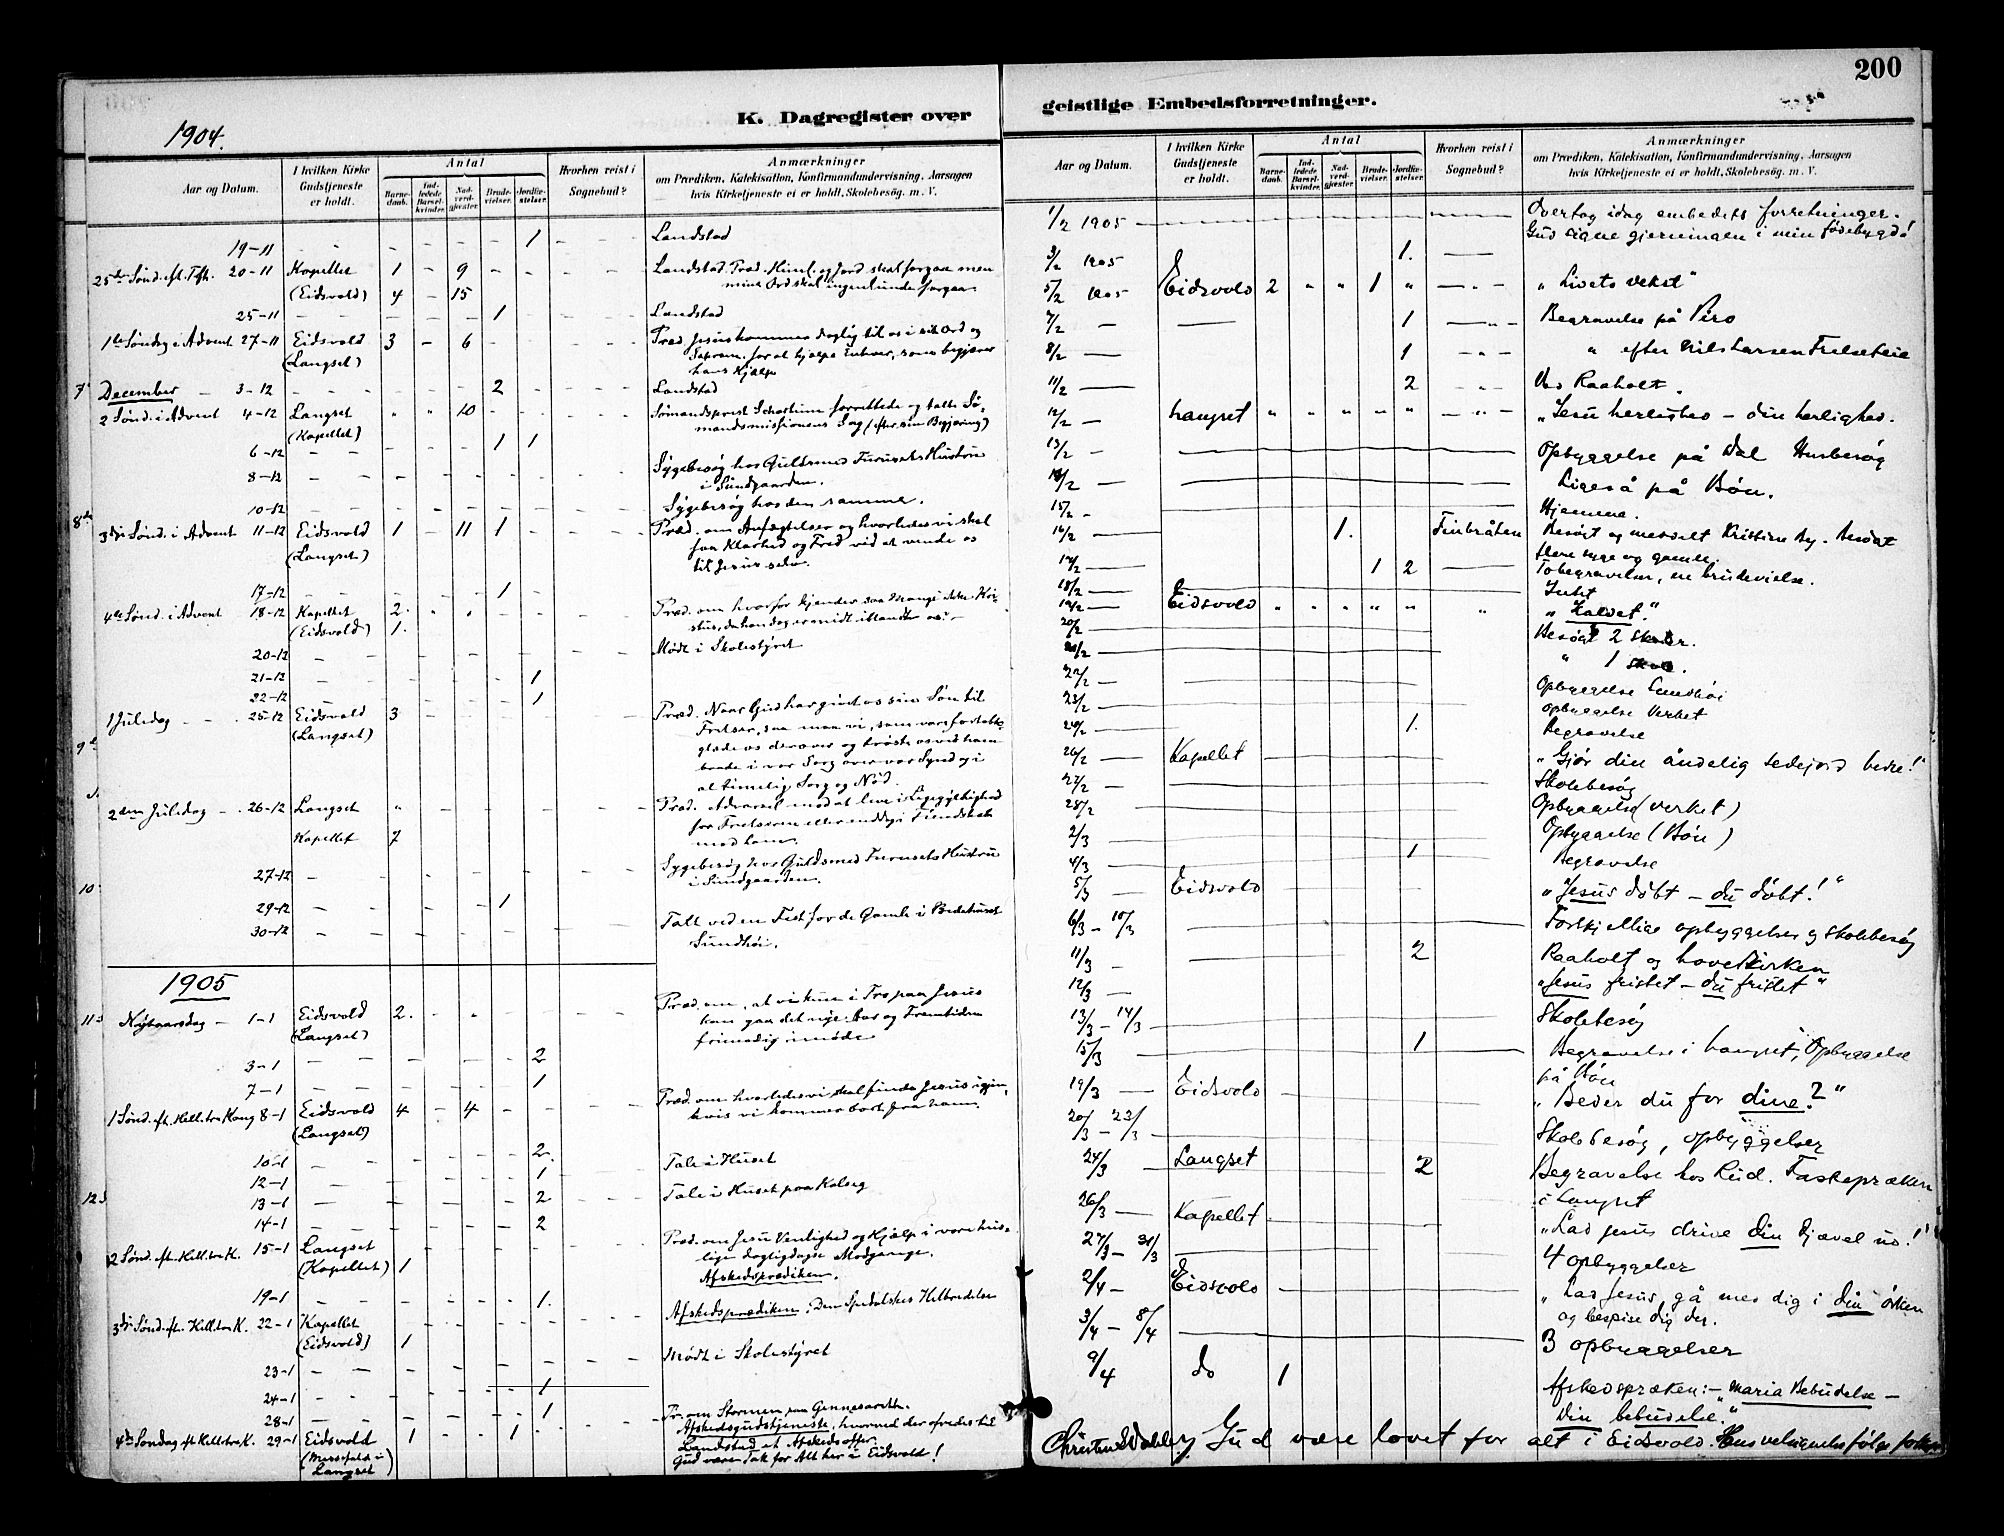 200
K. Dagregister over
1904.
Aar og Datum.
I hvilken Kirke Gudstjeneste er holdt.
Antal
Barnedaab.
Indledede Barselkvinder.
Nadverdgjæster
Brudevielser.
Jordfæstelser.
Hvorhen reist i Sognebud?
Anmærkninger
om Prædiken, Katekisation, Konfirmandundervisning, Aarsagen
hvis Kirketjeneste ei er holdt, Skolebesøg. m. V.
19-11 - - - - - - 1 - - - Landstad
25de Sønd. eft. Tfh. 20-11 Kapellet 1 - 9 - - - - - Landstad. Præd. Himl. og Jord skal forgaa men
(Eidsvold) 4 - 15 mine Ord skal ingenlunde forgaa.
25-11 - - - - - 1 - - - Landstad
1ste Søndag i Advent 27-11 Eidsvold 3 - 6 Præd. Jesus kommer daglig til os i sit Ord og
(Langset) Sacram. for at hjælpe Enhver, som begjærer
hans Hjælp
7 December - 3-12 - - - - - 2 - - - - Landstad
2 Sønd. i Advent 4-12 Langset " " 10 - - - - - Sømandsprest forrettede og talte Sø-
(Kapellet) mandsmissionens Sag (efter sin Begjæring)
6-12 - - - - - 1 1 - - -
8-12 - - - - - - - - - Sygebesøg hos Guldsmed Furusets Hustru
i Sundgaarden.
10-12 - - - - - - - - Sygebesøg hos den samme.
8de 3die Sønd. i Advent 11-12 Eidsvold 1 - 11 1 - - - - Præd. om Anfægtelser og hvorledes vi skal
(Langset) faa Klarhed og Fred ved at vende os
til Jesus selv.
17-12 - - - - - 1 - - - -
4de Sønd. i Advent 18-12 Kapellet 2. " " - - - - - Præd. om hvorfor kjender saa Mange ikke Kri-
(Eidsvold) 1. stus, da han dog er midt iblandt os?
20-12 - - - - - - - - - Møde i Skolestyret
21-12 - - - - - - 1 - - -
22-12 - - - - - - 1 - - -
1 Juledag - - 25-12 Eidsvold 3 - - - - - - - Præd. Naar Gud har givet os sin Søn til
(Langset) Frelser, saa maa vi, som vare fortabte,
9 glæde os derover og trøste os ved ham
baade i vor Sorg over vor Synd og i
al timelig Sorg og Nød.
2den Juledag - 26-12 Langset " - - - - - - Præd. Advarsel mod at leve i Ligegyldighed
Kapellet 7 for Frelseren eller endog i Fiendskab
mod ham.
27-12 - - - - - - - - - Sygebesøg hos Guldsmed Furusets Hustru
i Sundgaarden.
10
29-12 - - - - - 1 - - - -
30-12 - - - - - - - - - Talt ved en Fest for de Gamle i Bedehuset
Sundhöi.
1905
11 Nytaarsdag - 1-1 Eidsvold 2. - - - - - - - Præd. om, at vi kun i Tro paa Jesus
(Langset) kan gaa det nye Aar og Fremtiden
frimodig imøde
3-1 - - - - - - 2 - - -
7-1 - - - - - - 1 - - -
1 Sønd. eft. Hell. tre Kong 8-1 Eidsvold 4 - 4 - - - - - Præd. om hvorledes vi skal finde Jesus igjen,
(Langset) hvis vi kommer bort fra ham.
10-1 - - - - - - 2. - - - Tale i Huset
12-1 - - - - - - 1 - - - Tale i Huset paa
12 13-1 - - - - - - 2 - - -
14-1 - - - - - - 2 - - -
2 Sønd. eft. Hell. tre K. 15-1 Langset Præd. om Jesu Venlighed og Hjælp i vore hus-
(Kapellet) 1 lige dagligdags Modgange.
Afskedsprædiken.
19-1 - - - - - - 1. - - -
3die Sønd. eft. Hell. tre K. 22-1 Kapellet Afskedsprædiken. Den Spedalskes Helbredelse
(Eidsvold) 1
23-1 - - - - - - - - - Møde i Skolestyret
24-1 - - - - - - 1 - - -
28-1 - - - - - - 1 - - -
4de Søndag eft. Hell. tre K. 29-1 Eidsvold 1 - - 1 - Pr. om Stormen paa Gennesareth.
(Messefald i Afskedsgudstjeneste, hvorved der ofredes til
Langset Landstad et Afskedsoffer.
Gud være Tak for Alt her i Eidsvold!
geistlige Embedsforretninger.
Aar og Datum.
I hvilken Kirke Gudstjeneste er holdt.
Antal
Barnedaab.
Indledede Barselkvinder.
Nadverdgjæster
Brudevielser.
Jordfæstelser.
Hvorhen reist i Sognebud?
Anmærkninger
om Prædiken, Katekisation, Konfirmandundervisning, Aarsagen
hvis Kirketjeneste ei er holdt, Skolebesøg. m. V.
1/2 1905 Overtog idag embedets forretninger.
Gud signe gjerningen i min fødebygd!
3/2 1905 1.
5/2 1905 Eidsvold 2 " " 1 " - " - "Livets vekst"
7/2 - 1 - " - Begravelse på
8/2 - 1 - " - " efter Nils Larsen
11/2 - 2 - " - Ved Raaholt.
12/2 - Langset " " " " " - " - "Jesu herlighed - din herlighed.
13/2 - Opbyggelse på Dal Husbesøg
14/2 - Ligeså på Bön.
15/2 - Hjemme.
16/2 - 1. Finbråten Besøgt og meddelt Kristine By. Besøgt
flere syge og gamle.
17/2 - 1 2 To begravelser, en brudevielse.
18/2 - Intet
19/2 - Eidsvold " " " " " " "Kaldet."
20/2 - Besøgt 2 skoler.
21/2 - " 1 skole.
22/2 - Opbyggelse Sundhöi
23/2 - Opbyggelse Verket
24/2 - 1. Begravelse
26/2 - Kapellet "Gjør din åndelig sedejord bedre!"
27/2 - Skolebesøg
28/2 - Opbyggelse (Verket)
2/3 - Opbyggelse (Bön)
4/3 - 1 Begravelse
5/3 - Eidsvold "Jesus døbt - du døbt!"
6/3 - 10/3 Forskjellige opbyggelser og skolebesøg
11/3 - 2 Raaholt og hovedkirken
12/3 - "Jesus fristet - du fristet"
13/3 - 14/3 Skolebesøg
15/3 1 Begravelse i Langset, Opbyggelse
på Bön
19/3 - Eidsvold "Beder du for dine?"
20/3 - 23/3 Skolebesøg, opbyggelser
24/3 - Langset 2 Begravelse hos Rud. Fastepræken
i Langset
26/3 - Kapellet "Lad Jesus drive din Djævel ud!"
27/3 - 31/3 4 opbyggelser
2/4 - Eidsvold "Lad Jesus gå med dig i din ørken
og bespise dig der.
3/4 - 8/4 3 opbyggelser
9/4 do 1 Afskedspræken: - "Maria Bebudelse -
Din bebudelse."
Gud være lovet for alt i Eidsvold.